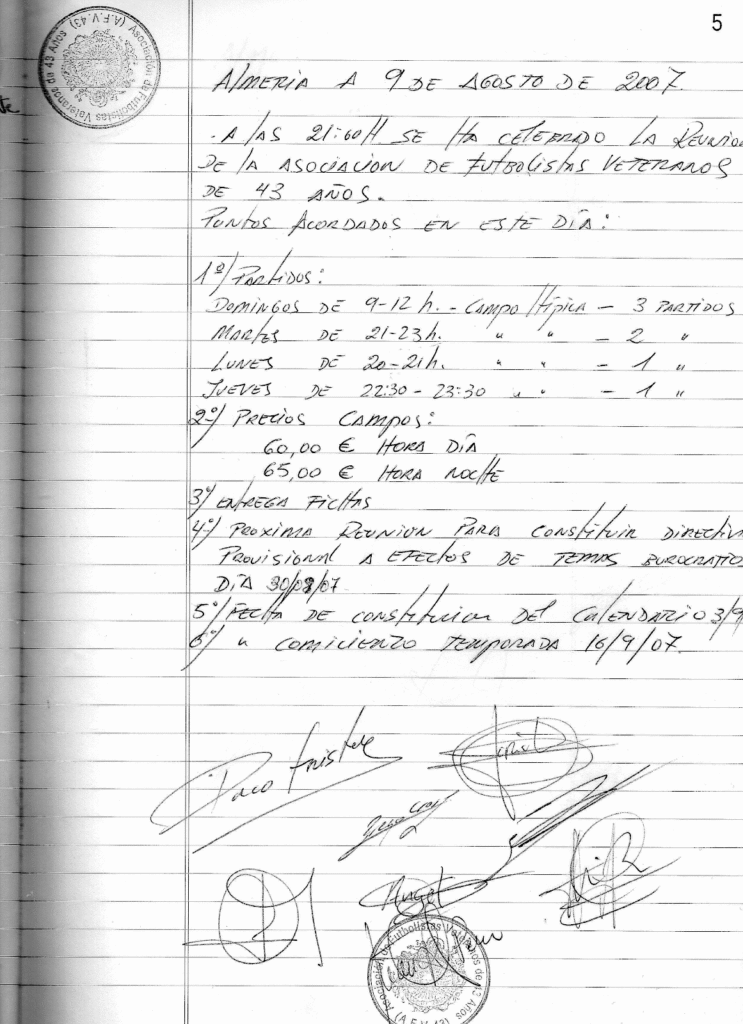 5
Asociación de Futbolistas Veteranos de 43 Años (A.F.V.43)
te
ALMERIA A 9 DE AGOSTO DE 2007
. A LAS 21:00H SE HA CELEBRADO LA REUNIO
DE LA ASOCIACION DE FUTBOLISTAS VETERANOS
DE 43 AÑOS.
PUNTOS ACORDADOS EN ESTE DÍA:
1º/ PARTIDOS:
DOMINGOS DE 9-12 h. - CAMPO /TÍPICA - 3 PARTIDOS
MARTES DE 21-23h. " " - 2 "
LUNES DE 20-21h. " " - 1 "
JUEVES DE 22:30 - 23:30 " " - 1 "
2º/ PRECIOS CAMPOS:
60,00 € HORA DÍA
65,00 € HORA NOCHE
3º/ ENTREGA FICHAS
4º/ PROXIMA REUNION PARA CONSTITUIR DIRECTIVA
PROVISIONAL A EFECTOS DE TEMAS BUROCRATICO
DÍA 30/08/07
5º/ FECHA DE CONSTITUCION DEL CALENDARIO 3/9
6º/ " COMICIENZO TEMPORADA 16/9/07.
Paco
Angel
Asociación de Futbolistas Veteranos de 43 Años (A.F.V.43)